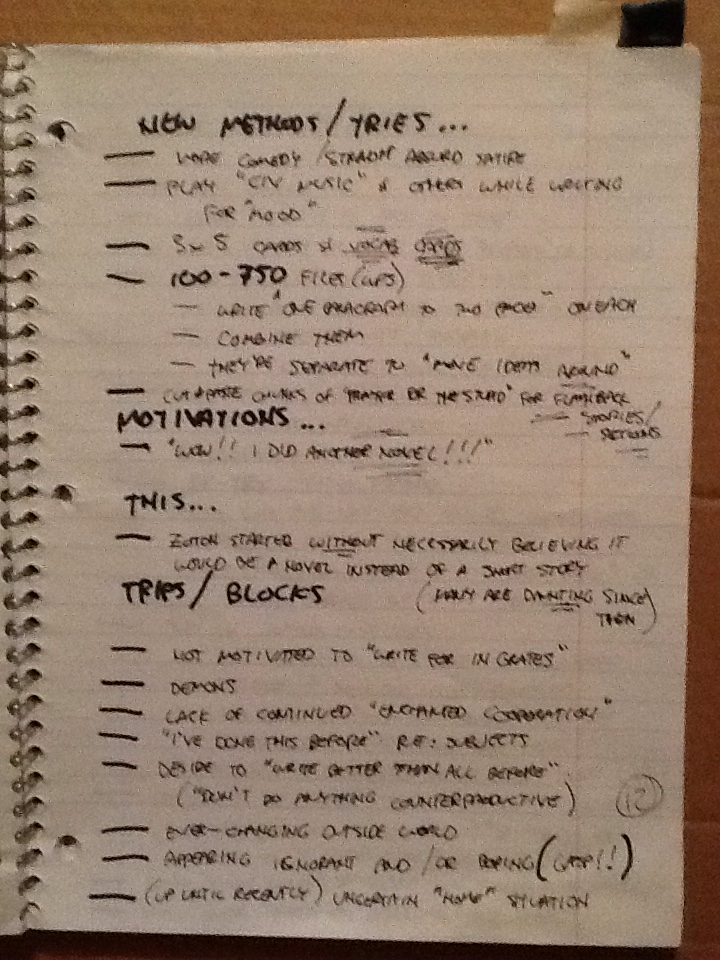 NEW METHODS/TRIES...
— MORE COMEDY/STRAIGHT ABSURD SATIRE
— PLAY "CIV MUSIC" & OTHERS WHILE WRITING
FOR "MOOD"
— 3x5 CARDS & VOCAB CARDS
— 100-750 FILES (WPS)
— WRITE "ONE PARAGRAPH TO TWO PAGES" ON EACH
— COMBINE THEM
— THEY'RE SEPARATE TO "MOVE IDEAS AROUND"
— CUT & PASTE CHUNKS OF OR FOR FLASHBACK
— STORIES/
— SECTIONS
MOTIVATIONS...
— "WOW!! I DID ANOTHER NOVEL!!!"
THIS...
— STARTED WITHOUT NECESSARILY BELIEVING IT
WOULD BE A NOVEL INSTEAD OF A SHORT STORY
(MANY ARE DAUNTING SINCE
THEN)
TRIPS/BLOCKS
— NOT MOTIVATTED TO "WRITE FOR IN GRATES"
— DEMONS
— LACK OF CONTINUED "ENCHANTED COOPERATION"
— "I'VE DONE THIS BEFORE" RE: SUBJECTS
— DESIRE TO "WRITE BETTER THAN ALL BEFORE"
("DON'T DO ANYTHING COUNTERPRODUCTIVE)
12
— EVER-CHANGING OUTSIDE WORLD
— APPEARING IGNORANT AND/OR BORING (GASP!!)
— (UP UNTIL RECENTLY) UNCERTAIN "HOME" SITUATION